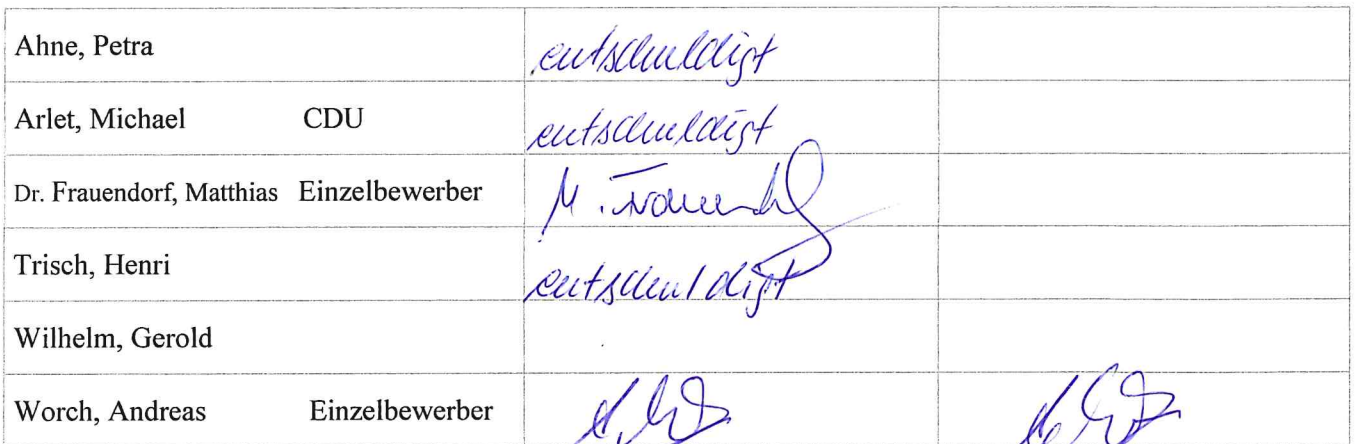 Ahne, Petra entschuldigt
Arlet, Michael CDU entschuldigt
Dr. Frauendorf, Matthias Einzelbewerber
Trisch, Henri entschuldigt
Wilhelm, Gerold
Worch, Andreas Einzelbewerber